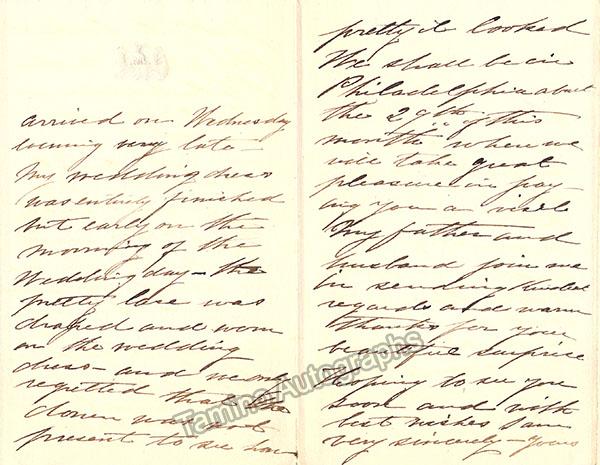 arrived on Wednesday
evening very late—
My wedding dress
was entirely finished
but early on the
morning of the
Wedding day— the
pretty lace was
draped and worn
on the wedding
dress— and we only
regretted that the
donor was not
present to see how
pretty it looked
We shall be in
Philadelphia about
the 29th of this
month when we
will take great
pleasure in pay-
ing you a visit
My father and
husband join me
in sending kindest
regards and warm
thanks for your
beautiful surprise
Hoping to see you
soon and with
best wishes I am
very sincerely— yours
Tamino Autographs